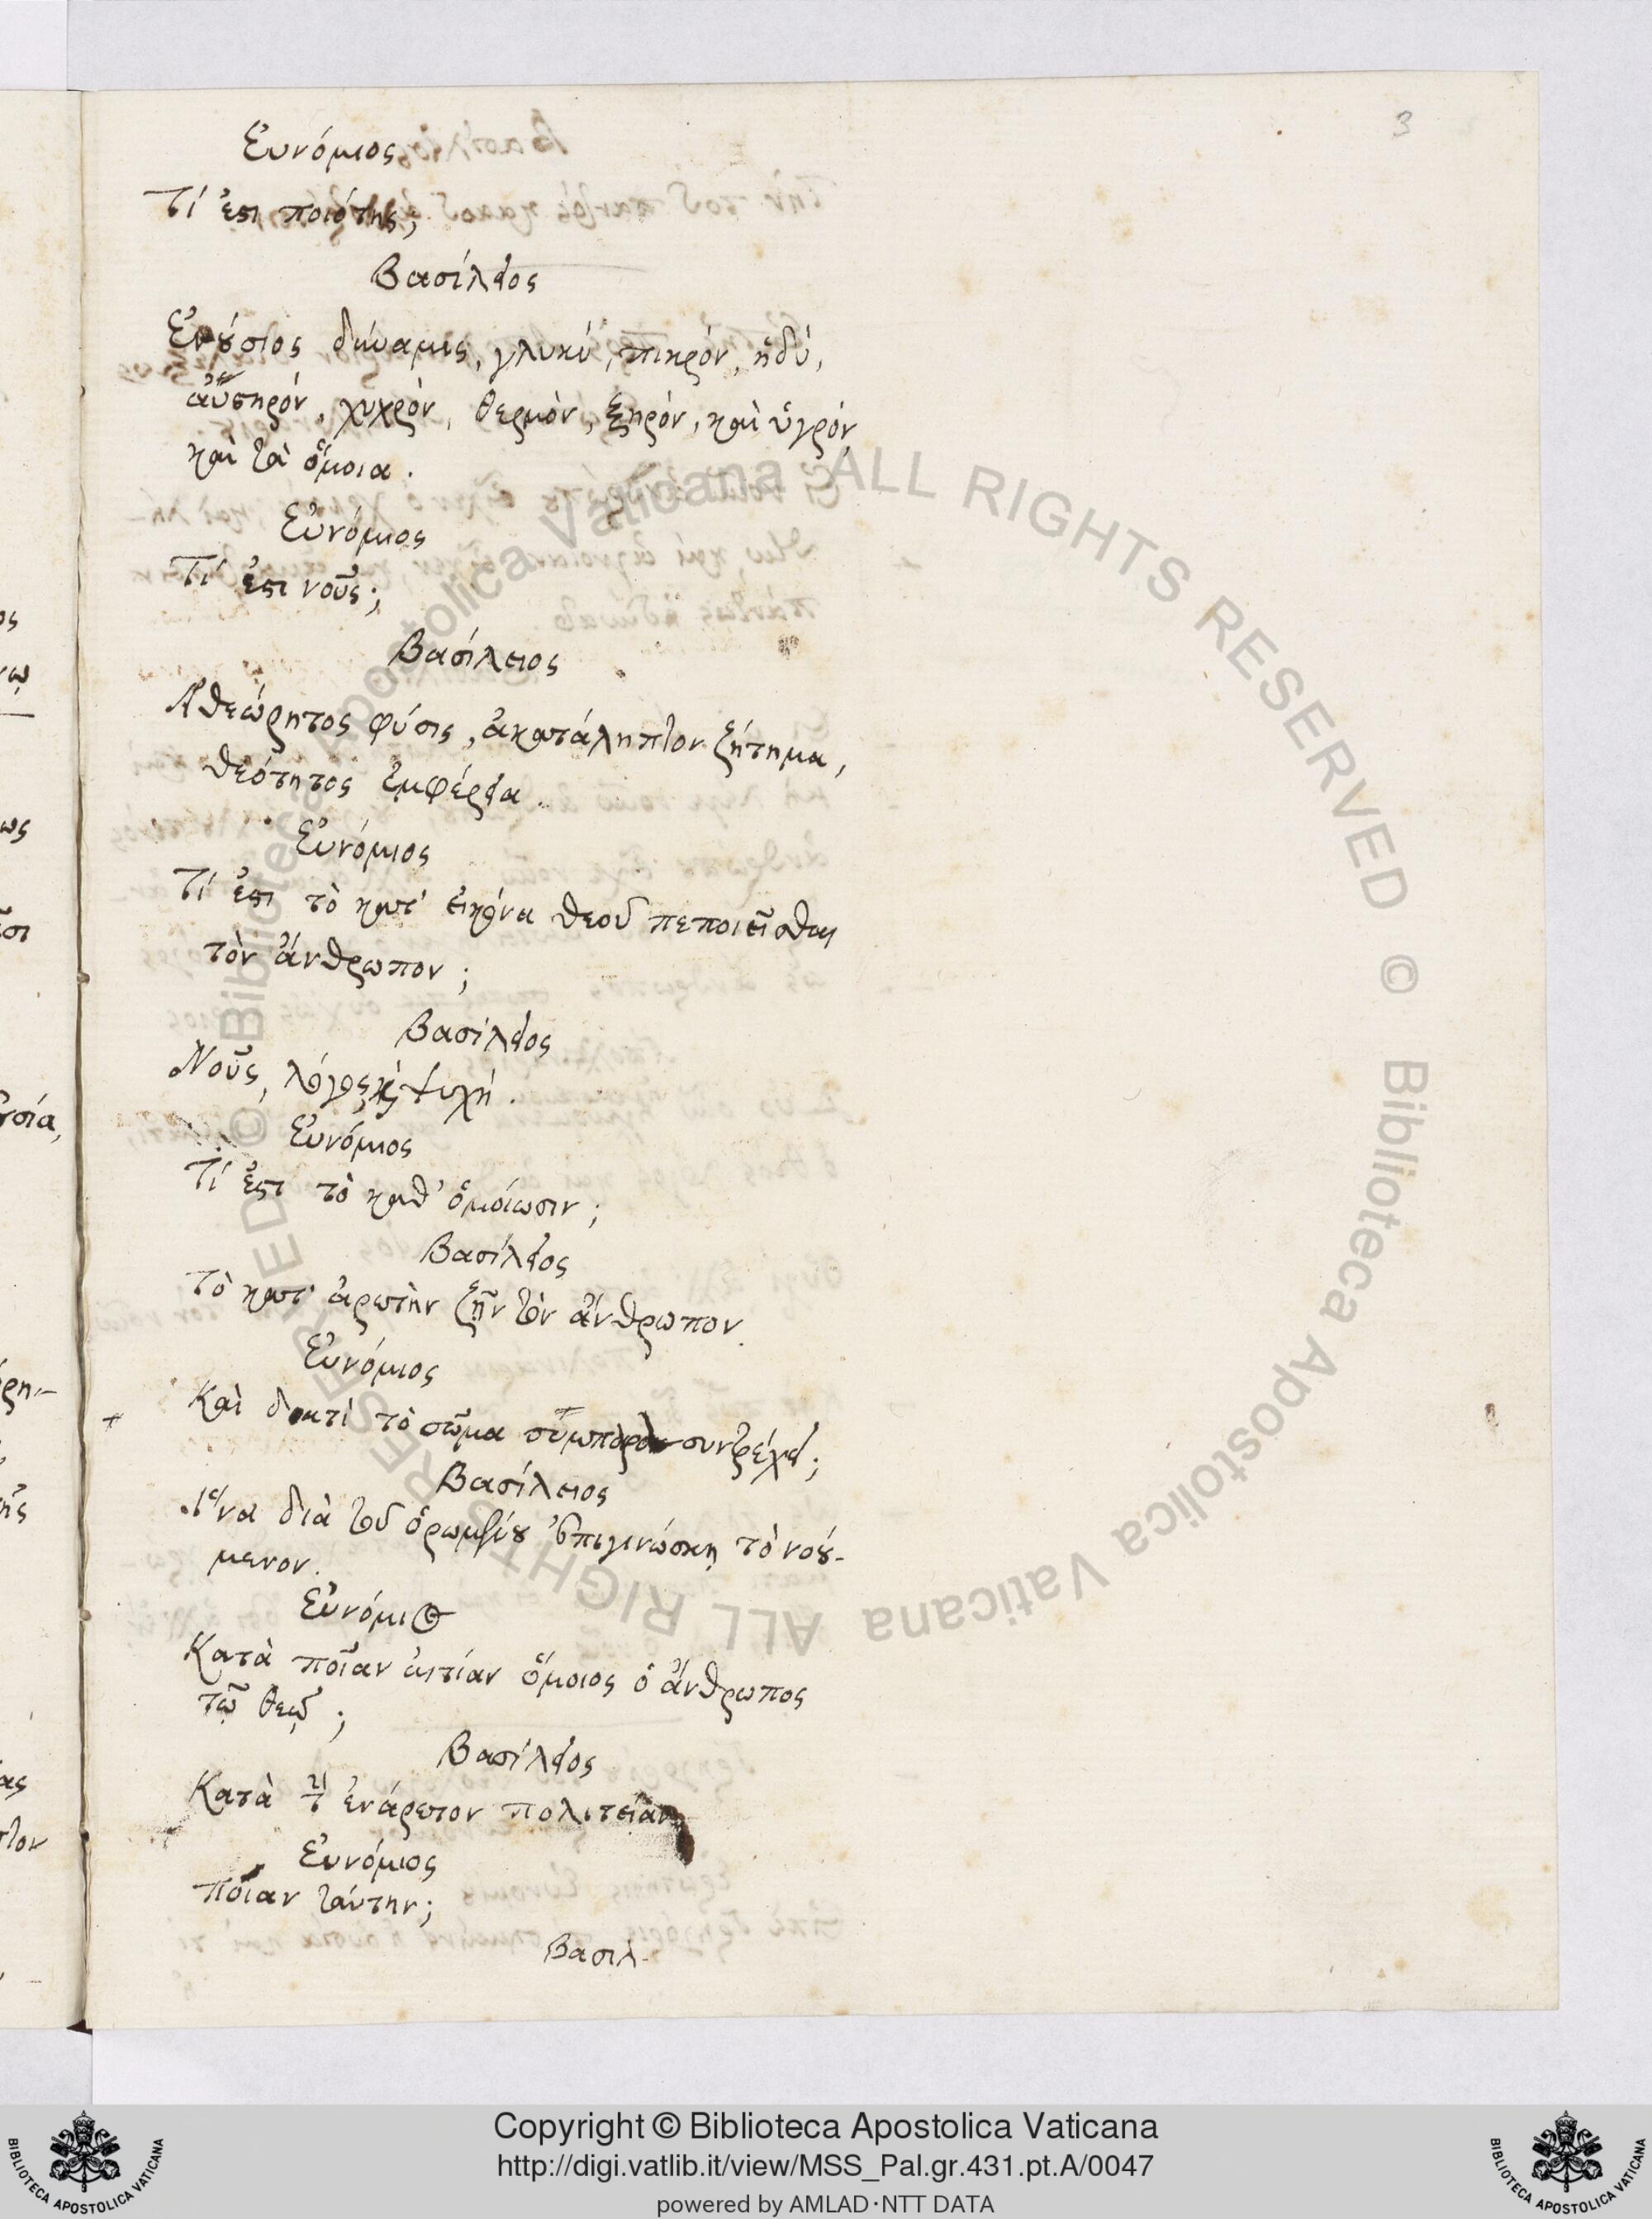 3
Εὐνόμιος
Τί ἐστι ποιότης;
Βασίλειος
Ἐνούσιος δύναμις, γλυκύ, πικρόν, ἡδύ,
αὐστηρόν, ψυχρόν, θερμὸν, ξηρόν, καὶ ὑγρόν,
καὶ τὰ ὅμοια.
Εὐνόμιος
Τί ἐστι νοῦς;
Βασίλειος
Ἀθεώρητος φύσις, ἀκατάληπτον ζήτημα,
θεότητος ἐμφέρεια.
Εὐνόμιος
Τί ἐστι τὸ κατ' εἰκόνα θεοῦ πεποιεῖσθαι
τὸν ἄνθρωπον;
Βασίλειος
Νοῦς, λόγος, καὶ ψυχή.
Εὐνόμιος
Τί ἐστι τὸ καθ' ὁμοίωσιν;
Βασίλειος
Τὸ κατ' ἀρετὴν ζῆν τὸν ἄνθρωπον.
Εὐνόμιος
Καὶ διατί τὸ σῶμα συντρέχει;
Βασίλειος
Ἵνα διὰ τοῦ ὁρωμένου ἐπιγινώσκῃ τὸ νού-
μενον.
Εὐνόμιος
Κατὰ ποῖαν αἰτίαν ὅμοιος ὁ ἄνθρωπος
τῷ θεῷ;
Βασίλειος
Κατὰ τὴν ἐνάρετον πολιτείαν
Εὐνόμιος
Ποῖαν ταύτην;
Βασιλ-
ALL RIGHTS RESERVED © Biblioteca Apostolica Vaticana ALL RIGHTS RESERVED © Biblioteca Apostolica Vaticana
Copyright © Biblioteca Apostolica Vaticana
http://digi.vatlib.it/view/MSS_Pal.gr.431.pt.A/0047
powered by AMLAD·NTT DATA
BIBLIOTECA APOSTOLICA VATICANA
BIBLIOTECA APOSTOLICA VATICANA